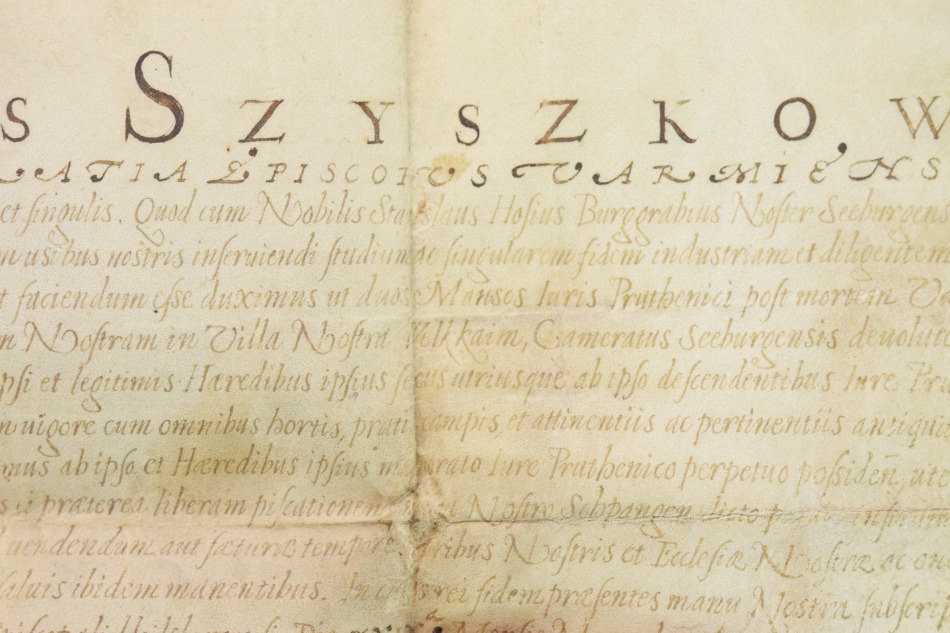 S SZYSZKOW
GRATIA EPISCOPUS VARMIENS
et singulis. Quod cum Nobilis Stanislaus Hosius Burggrabius Noster Seeburgens
usibus nostris inseruiendi studium ac singularem fidem industriam et diligentem
faciendum esse duximus ut duos Mansos Iuris Pruthenici post mortem
Nostram in Villa Nostra Elkkaim, Cameratus Seeburgensis deuoluti
ipsi et legitimis Hæredibus ipsius sexus utriusque ab ipso descendentibus Iure
uigore cum omnibus hortis, pratis campis, et attinentiis ac pertinentiis antiquit
mus ab ipso et Hæredibus ipsius Iure Pruthenico perpetuo possideñ, ute
præterea liberam piscationem Nostræ Schpangen dicto
uendendum aut fæturæ tempore Nostris et Ecclesiæ Nostræ ac
saluis ibidem manentibus. In cuius rei fidem præsentes manu Nostra subscrip